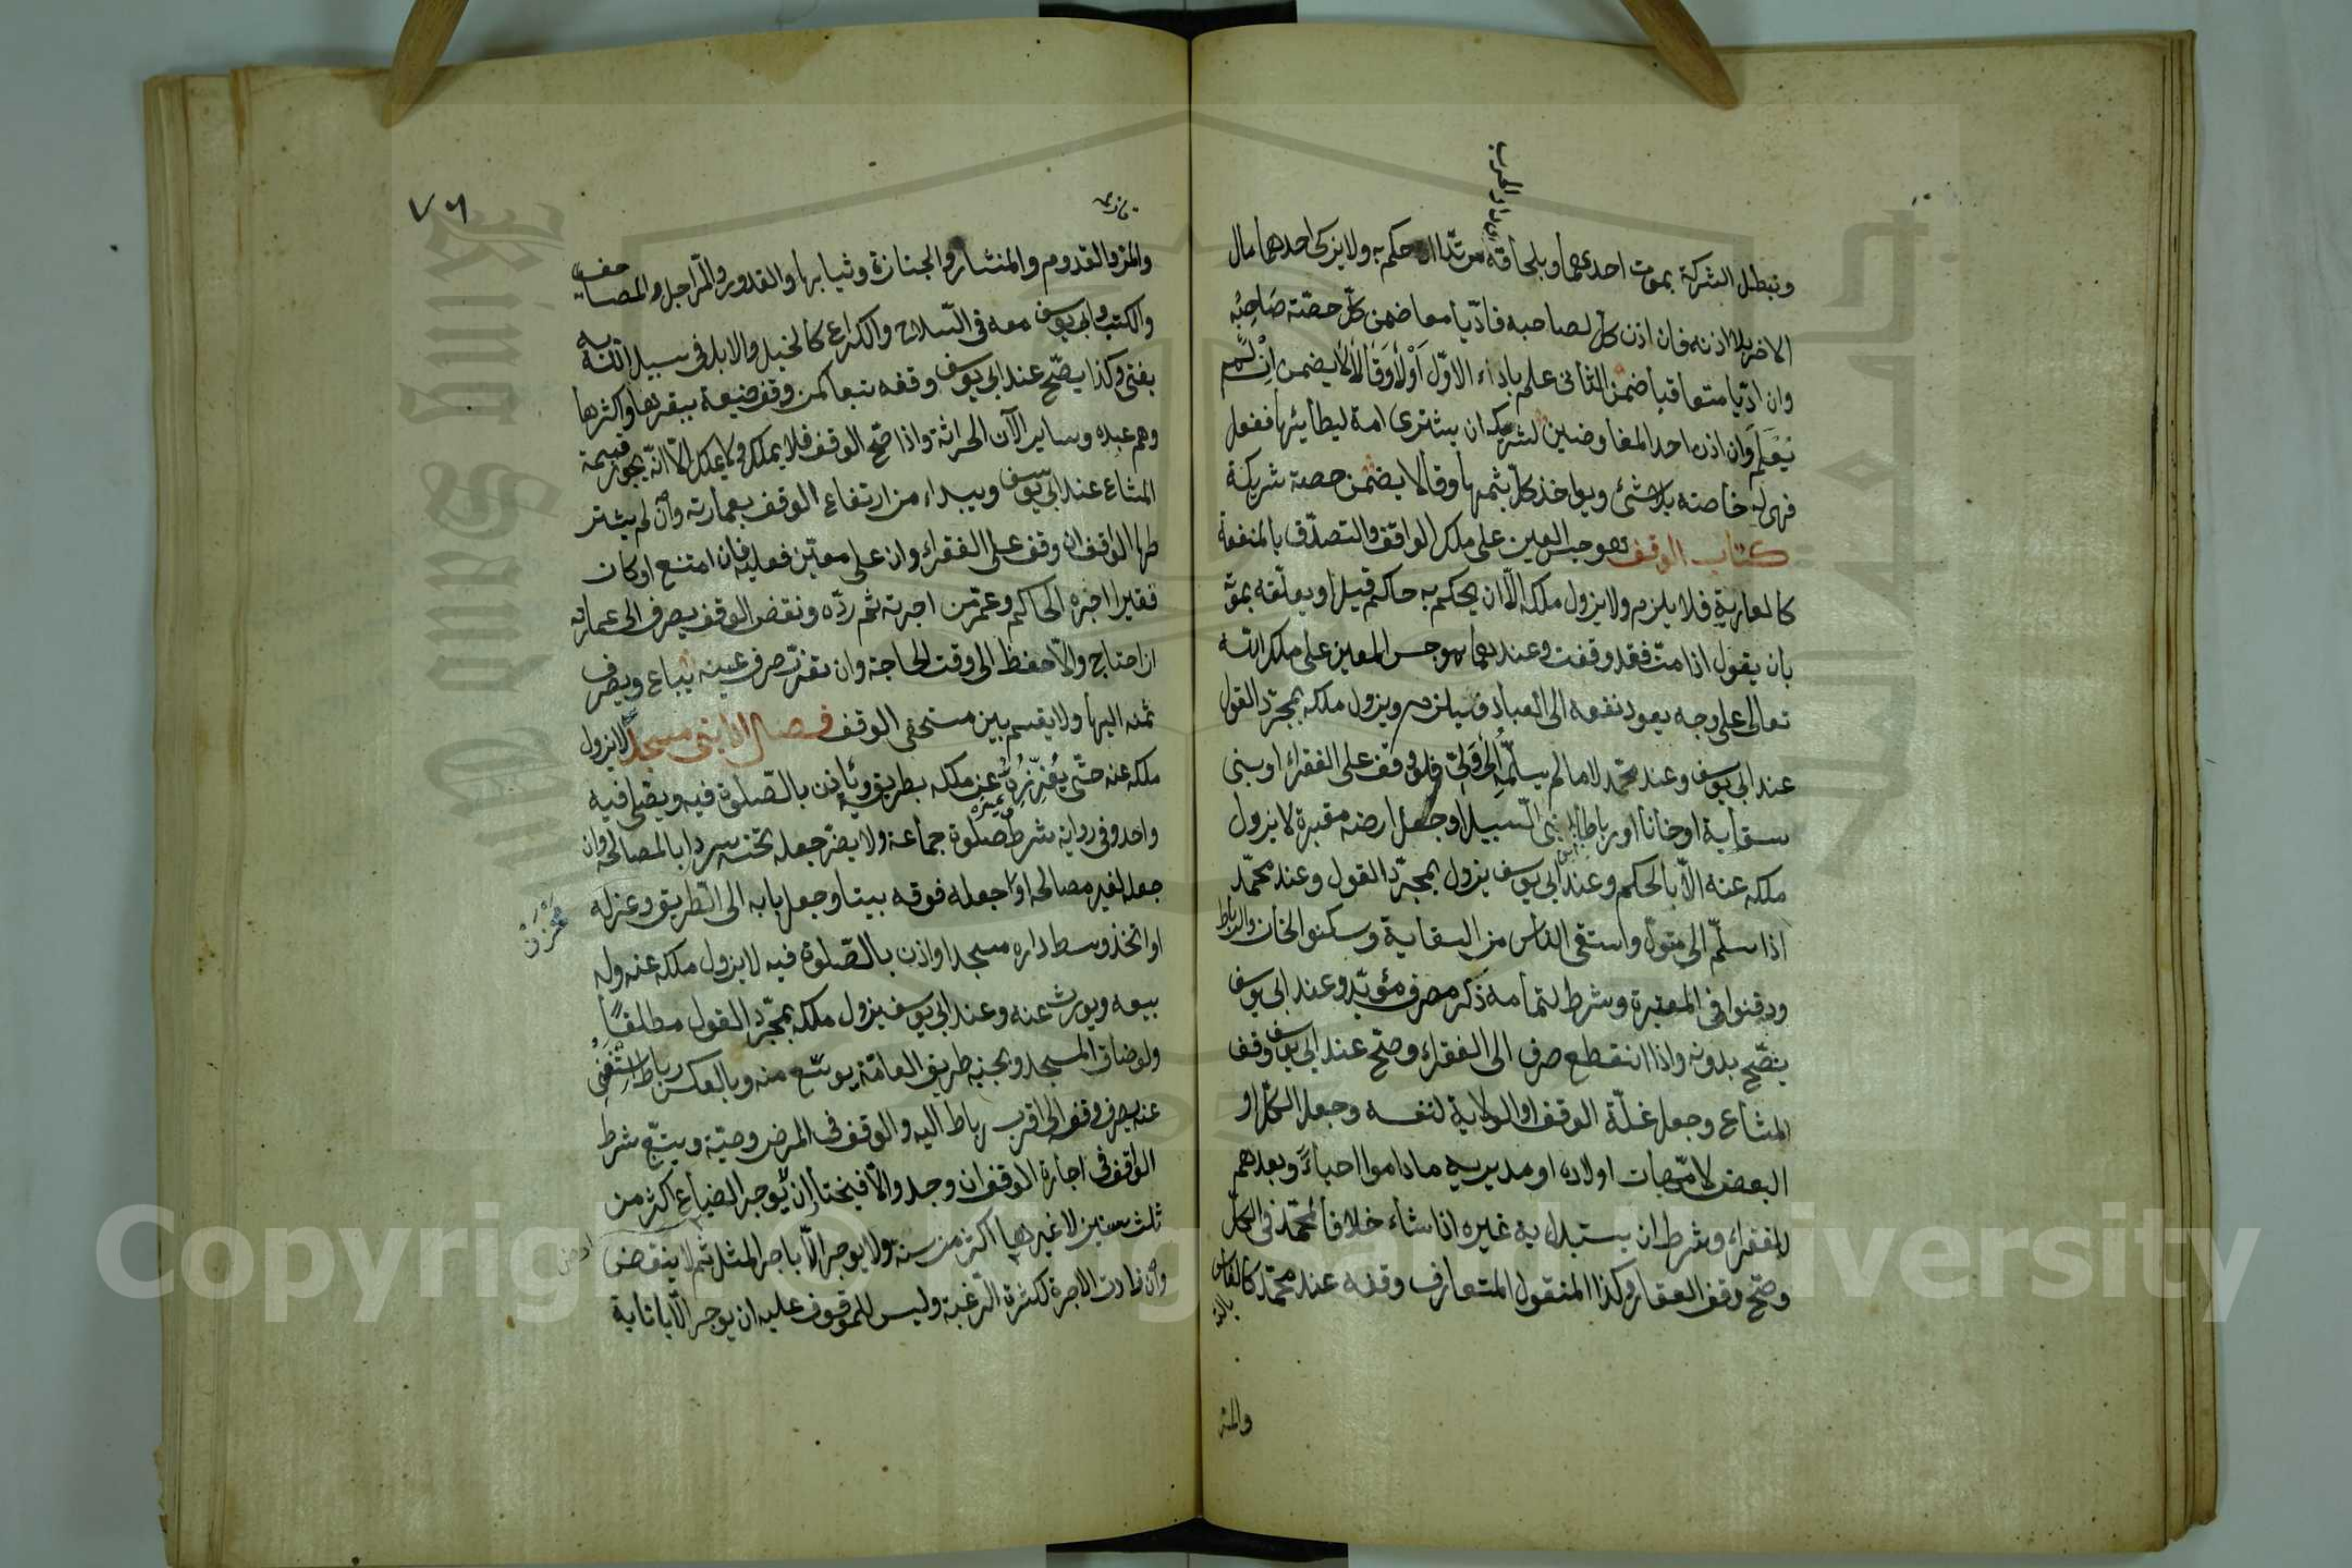 وتبطل الشركة بموت احدهما وبلحاقه مرتدا ان حكم به ولا يزكى احدهما مال
بدار الحرب
الاخر بلا اذنه فان اذن كل لصاحبه فادّيا معا ضمن كلّ حصّة صَاحِبُه
وان ادّيا متعاقبا ضمن الثانى علم باداء الاوّل اَوْلاَ وَقَالاَ لا يضمن اِنْ لَمْ
يَعْلَم وان اذن احد المفاوضين لشريكه ان يشترى امة ليطأئها ففعل
فهى له خاصته بلا شئ ويواخذ كلّ بثمنها وقالا يضمن حصة شريكة
كتاب الوقف هو حبس العين على ملك الواقف والتصدّق بالمنفعة
كالعارية فلا يلزم ولا يزول ملكه الّا ان يحكم به حاكم قيل او يعلّقه بموته
بان يقول اذا متّ فقد وقفت وعندهما هو حبس العين على ملك الله
تعالى على وجه يعود نفعه الى العباد فيلزم ويزول ملكه بمجرّد القول
عند ابى يوسف وعند محمّد لا ما لم يسلّمه اِلَى وَلِىّ فلو وقف على الفقراء او بنى
سقاية او خانا او رباطا لبنى السّبيل او جعل ارضه مقبرة لا يزول
ملكه عنه الّا بالحكم وعند ابى يوسف يزول بمجرّد القول وعند محمّد
اذا سلّم الى متولّ واستقى الناس من السقاية وسكنوا الخان والرباط
ودفنوا فى المقبرة وشرط لتمامه ذكر مصرف مؤبّد وعند ابى يوسف
يصّح بدونه واذا انقطع صرف الى الفقراء وصحّ عند ابى يوسف وقف
المشاع وجعل غلّة الوقف او الولاية لنفسه وجعل الكل او
البعض لامّهات اولاده او مدبريه ما داموا احياءً وبعدهم
للفقراء وشرط ان يستبدل به غيره اذا شاء خلافا لمحمّد فى الكلّ
وصّح وقف العقار وكذا المنقول المتعارف وقفه عند محمّد كالفاس
والمر
٧٦
والمرّ والقدوم والمنشار والجنازة وثيابها والقدور والمراجل والمصاحف
والكتب وابى يوسف معه فى السّلاح والكراع كالخيل والابل فى سبيل الله به
يفتى وكذا يصّح عند ابى يوسف وقفه تبعا كمن وقف ضيعة ببقرها واكثرها
وهم عبيده وساير الآت الحراثة واذا صّح الوقف فلا يملك ولا يملّك الّا انّه يجوز قسمة
المشاع عند ابى يوسف ويبداء من ارتفاع الوقف بعمارته وان لم يشتر
طها الواقف ان وقف على الفقراء وان على معيّن فعليه فان امتنع او كان
فقيرا اجره الحاكم وعمّر من اجرته ثم ردّه ونقض الوقف يصرف الى عمارته
ان احتاج والّا حفظ الى وقت الحاجة وان تعذّر صرف عينه يباع ويصرف
ثمنه اليها ولا يقسم بين مستحقى الوقف فصل اذا بنى مسجدا لا يزول
ملكه عنه حتّى يُفْرِزُه عن ملكه بطريقه ويأذن بالصّلوة فيه ويصلى فيه
واحد وفى رواية شرط صلوة جماعة ولا يضرّ جعله تحته سردابا لمصالحه وان
جعل لغير مصالحه او جعله فوقه بيتا وجعل بابه الى الطّريق وعزله
او اتخذ وسط داره مسجدا واذن بالصّلوة فيه لا يزول ملكه عنه وله
بيعه ويورث عنه وعند ابى يوسف يزول ملكه بمجّرد القول مطلقًا
ولو ضاق المسجد وبجنبه طريق العامّة يوسّع منه وبالعكس رباط اسْتُغْنِىَ
عنه يصرف وقفه الى اقرب رباط اليه والوقف فى المرض وصيّة ويتبّع شرط
الواقف فى اجارة الوقف ان وجد والّا فيختار ان يؤجر الضياع اكثر من
ثلث سنين لا غيرها اكثر من سنة ولا يوجر الّا باجر المثل ثم لا ينقض
وان زادت الاجرة لكثرة الرّغبة وليس للموقوف عليه ان يوجر الّا بانابة
King Saud University
Copyright © King Saud University